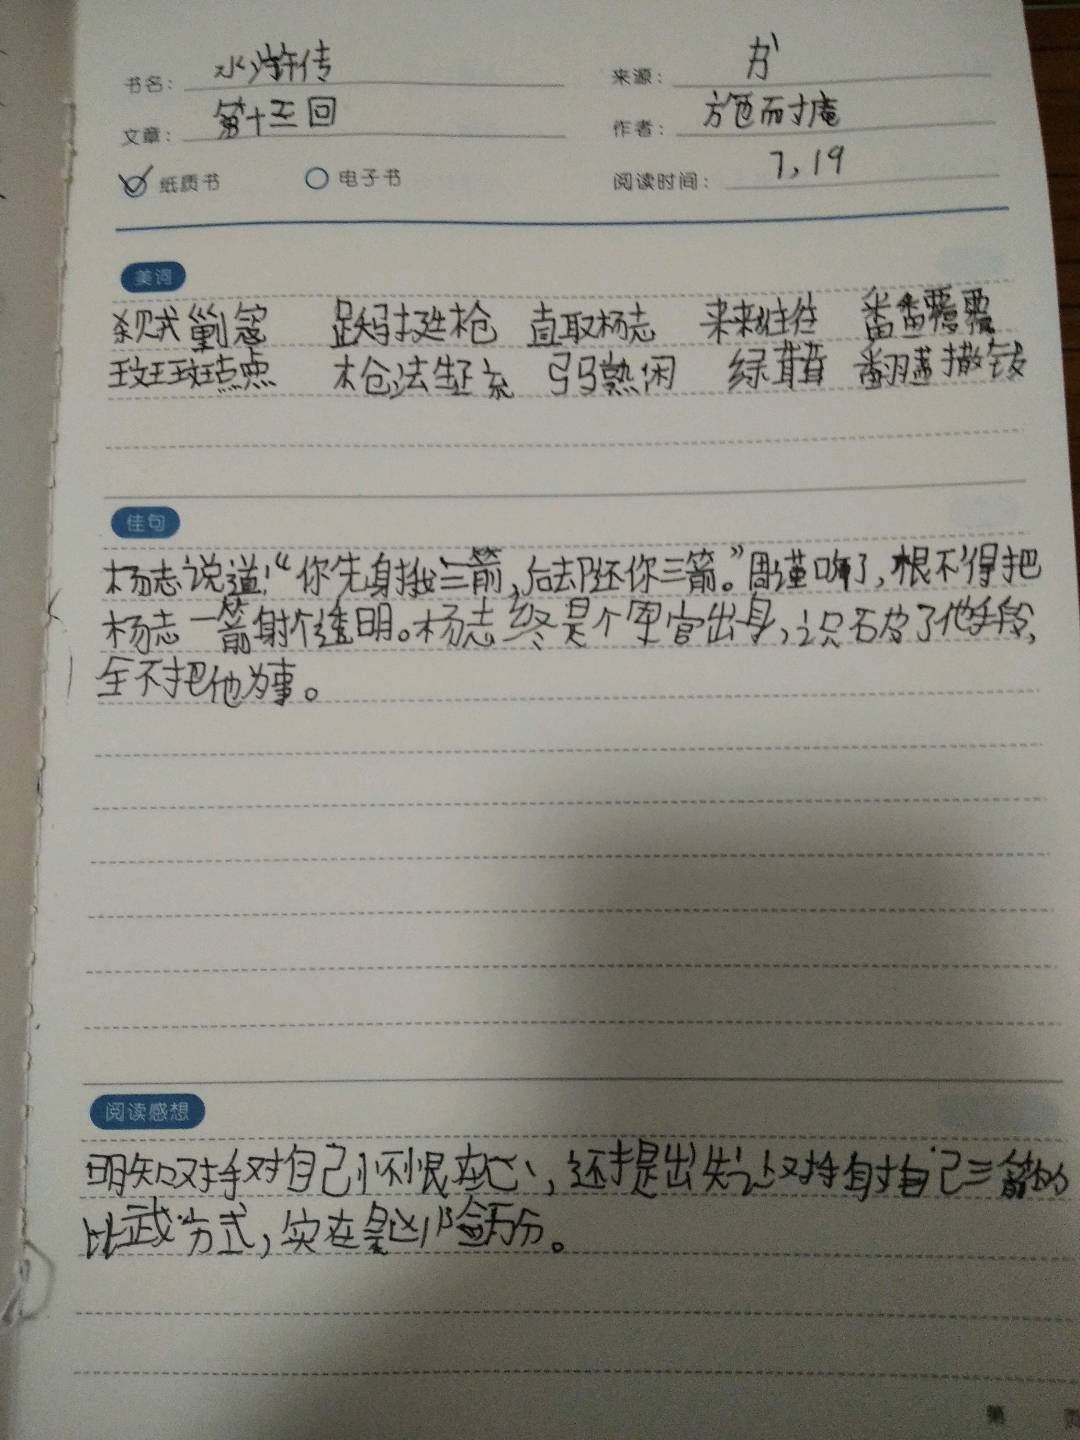 书名： 水浒传 来源： 书
文章： 第十三回 作者： 施耐庵
纸质书 电子书 阅读时间： 7，19
美词
杀贼剿寇 跃马挺枪 直取杨志 来来往往 番番覆覆
斑斑点点 枪法生疏 弓马熟闲 绿茸茸 翻蹄撒钹
佳句
杨志说道：“你先射我三箭，后却还你三箭。”周谨听了，恨不得把
杨志一箭射个透明。杨志终是个军官出身，识破了他手段，
全不把他为事。
阅读感想
明知对手对自己怀恨在心，还提出先让对手射自己三箭的
比武方式，实在是凶险万分。
第 页